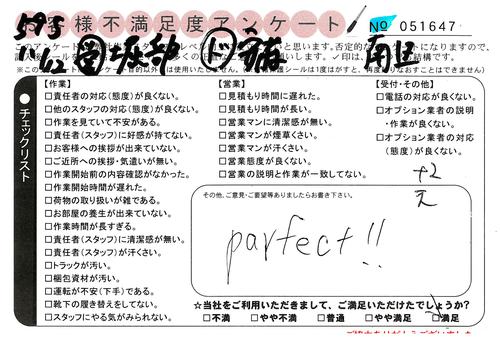 お客様不満足度アンケート
No 051647
【作業】
□責任者の対応(態度)が良くない。
□他のスタッフの対応(態度)が良くない。
□作業を見ていて不安がある。
□責任者(スタッフ)に好感が持てない。
□お客様への挨拶が出来ていない。
□ご近所への挨拶・気遣いが無い。
□作業開始前の内容確認がなかった。
□作業開始時間が遅れた。
□荷物の取り扱いが雑である。
□お部屋の養生が出来ていない。
□作業時間が長すぎる。
□責任者(スタッフ)に清潔感が無い。
□責任者(スタッフ)が汗くさい。
□トラックが汚い。
□梱包資材が汚い。
□運転が不安(下手)である。
□靴下の履き替えをしてない。
□スタッフにやる気がみられない。
【営業】
□見積もり時間に遅れた。
□見積もり時間が長い。
□営業マンに清潔感が無い。
□営業マンが煙草くさい。
□営業マンが汗くさい。
□営業態度が良くない。
□営業の説明と作業が一致してない。
【受付・その他】
□電話の対応が良くない。
□オプション業者の説明
・作業が良くない。
□オプション業者の対応
(態度)が良くない。
チェックリスト
その他、ご意見・ご要望等ありましたらお書き下さい。
parfect!!
☆当社をご利用いただきまして、ご満足いただけたでしょうか?
□不満 □やや不満 □普通 □やや満足 □満足